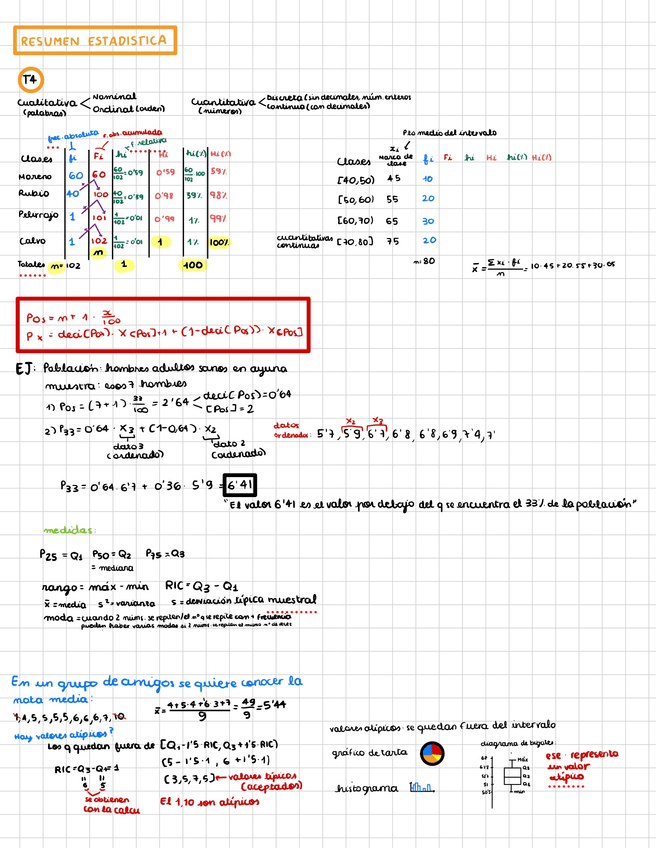 RESUMEN ESTADISTICA
T4
Cualitativa (palabras) < Nominal
Ordinal (orden)
Cuantitativa (números) < Discreta (sin decimales, núm. enteros
continua (con decimales)
frec. absoluta
f. abs. acumulada
f. relativa
Clases fi Fi hi Hi hi(%) Hi(%)
Moreno 60 60 60/102=0'59 0'59 60/102·100 59%
Rubio 40 100 40/102=0'39 0'98 39% 98%
Pelirrojo 1 101 1/102=0'01 0'99 1% 99%
Calvo 1 102 1/102=0'01 1 1% 100%
n
Totales n=102 1 100
Pto medio del intervalo
xi
Clases Marca de clase fi Fi hi Hi hi(%) Hi(%)
[40,50) 45 10
[50,60) 55 20
[60,70) 65 30
cuantitativas continuas [70,80] 75 20
n=80
x̄ = Σxi·fi/n = 10·45+20·55+30·65
Pos = n+1 · x/100
Px = deci(Pos) · X[Pos]+1 + (1-deci(Pos)) · X[Pos]
EJ: Población: hombres adultos sanos en ayuna
muestra: esos 7 hombres
1) Pos = (7+1) · 33/100 = 2'64 < deci(Pos)=0'64
[Pos]=2
2) P33=0'64 · x3 + (1-0,64) · x2
dato 3 (ordenado)
dato 2 (ordenado)
datos ordenados: 5'7, 5'9, 6'7, 6'8, 6'8, 6'9, 7'4, 7'
x2 x3
P33 = 0'64·6'7 + 0'36 · 5'9 = 6'41
"El valor 6'41 es el valor por debajo del q se encuentra el 33% de la población"
medidas:
P25 = Q1 P50 = Q2 P75 = Q3
= mediana
rango = máx - mín RIC = Q3 - Q1
x̄ = media s² = varianza s = desviación típica muestral
moda = cuando 2 núms. se repiten/el nº q se repite con + frecuencia
pueden haber varias modas si 2 núms. se repiten el mismo nº de veces
En un grupo de amigos se quiere conocer la
nota media:
1,4,5,5,5,5,6,6,6,7,10
x̄ = 4+5·4+6·3+7/9 = 49/9 = 5'44
Hay valores atípicos?
Los q quedan fuera de [Q1-1'5·RIC, Q3+1'5·RIC)
(5-1'5·1, 6+1'5·1)
RIC=Q3-Q1=1
6 5
[3,5,7,5] ← valores típicos (aceptados)
se obtienen con la calcu
El 1,10 son atípicos
valores atípicos: se quedan fuera del intervalo
gráfico de tarta
histograma
diagrama de bigotes
Máx
Q3
Q2
Q1
mín
ese · representa
un valor
atípico